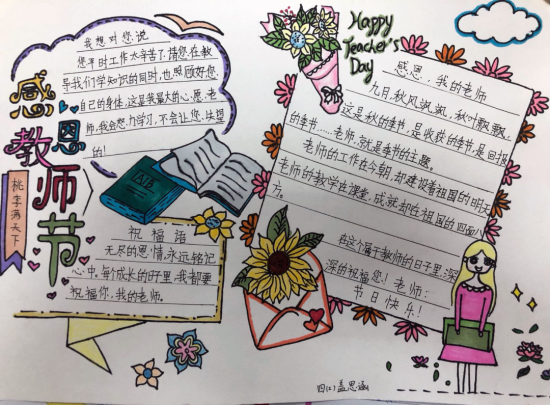 感恩教师节
桃李满天下
我想对您说
您平时工作太辛苦了,请您在教
导我们学知识的同时,也照顾好您
自己的身体,这是我最大的心愿。老
师,我会努力学习,不会让您失望
的!
A|B
祝福语
无尽的恩情,永远铭记
心中。每个成长的日子里,我都要
祝福你,我的老师。
Happy
Teacher's
Day
感恩,我的老师
九月,秋风飒飒,秋叶飘飘。
这是秋的季节,是收获的季节,是回报
的季节……老师,就是季节的主题。
老师的工作在今朝,却建设着祖国的明天
老师的教学在课堂,成就却在祖国的四面八
方。
在这个属于教师的日子里,深
深的祝福您!老师:
节日快乐!
四